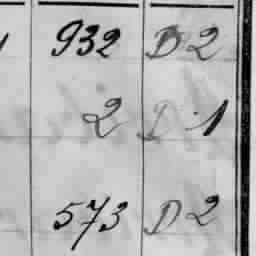 932 D 2
2 D 1
573 D 2